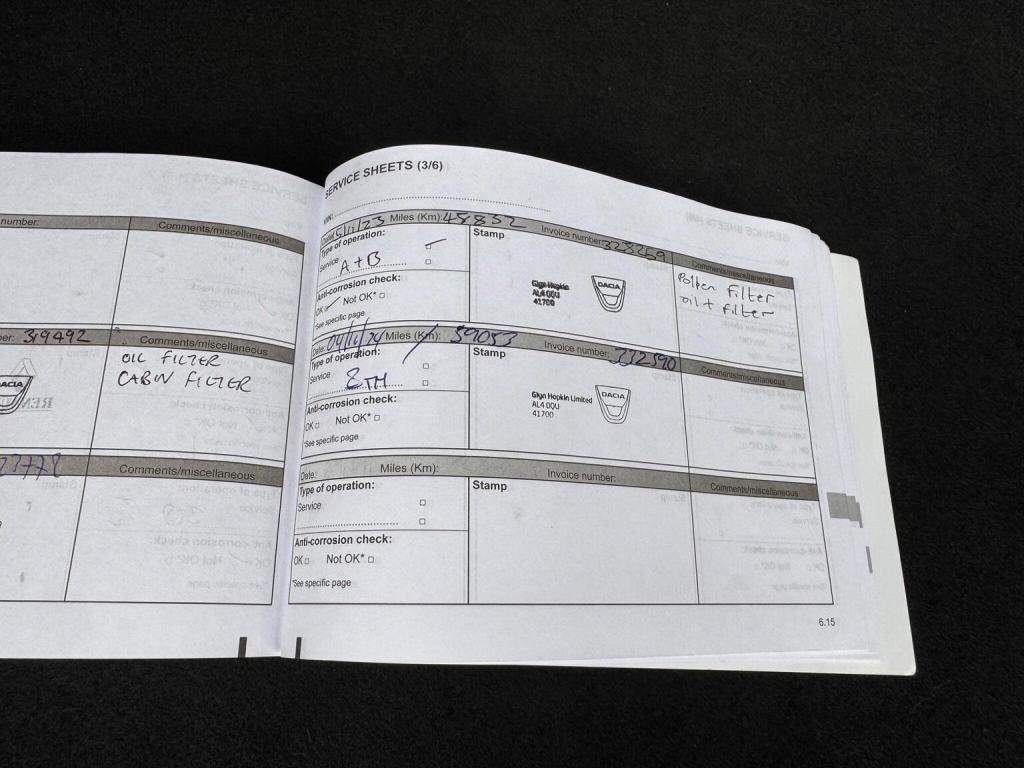 number:
Comments/miscellaneous
ber: 319492
Comments/miscellaneous
DACIA
OIL FILTER
CABIN FILTER
Comments/miscellaneous
SERVICE SHEETS (3/6)
VIN:
Date: 15/11/23 Miles (Km): 48852 Invoice number: 328269
Comments/miscellaneous
Type of operation:
Service A+B
Anti-corrosion check:
OK Not OK*
*See specific page
Stamp
Glyn Hopkin
AL4 0QU
41700
DACIA
Pollen Filter
oil + filter
Date: 04/11/24 Miles (Km): 59053 Invoice number: 332590
Comments/miscellaneous
Type of operation:
Service 8TH
Anti-corrosion check:
OK Not OK*
*See specific page
Stamp
Glyn Hopkin Limited
AL4 0QU
41700
DACIA
Date: Miles (Km): Invoice number:
Comments/miscellaneous
Type of operation:
Service
Anti-corrosion check:
OK Not OK*
*See specific page
Stamp
6.15